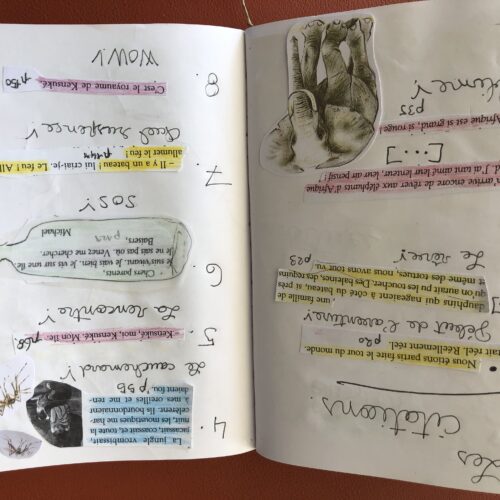 Les
Citations.
Nous étions partis faire le tour du monde.
réel. Réellement réel. p20
Début de l'aventure!
une famille de
dauphins qui nageaient à côté du bateau, si près
qu'on aurait pu les toucher. Des baleines, des requins
même des tortues, nous avons tout vu. p23
Le rêve!
arrive encore de rêver aux éléphants d'Afrique
J'ai tant aimé leur lenteur, leur air pensif
[...]
Afrique si grand, si rouge
p35
4.
La jungle vrombissait,
jacassait, coassait, et toute la
nuit, les moustiques me har-
celèrent. Ils bourdonnaient
à mes oreilles et me ren-
daient fou. p55
Le cauchemard!
5.
«Kensuké, moi, Kensuké. Mon île.
La rencontre!
6.
Chers parents,
Je suis vivant. Je vais bien. Je vis sur une île
Je ne sais pas où. Venez me chercher.
Baisers,
Michael
SOS!
7.
Il y a un bateau! lui criai-je. Le feu! All
allumer le feu!
Quel suspence!
8.
C'est le royaume de Kensuké. p150
WOW!